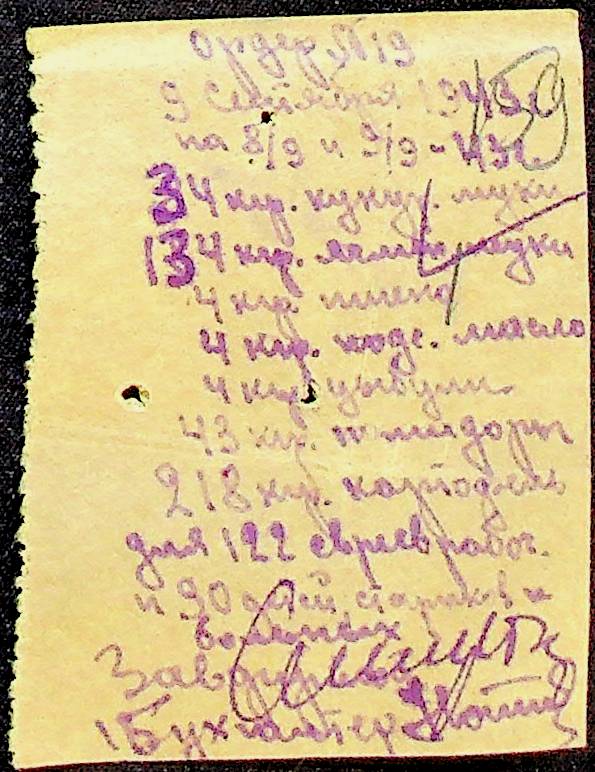 Ордер №19
9 Сентября 1943 г.
59
на 8/9 и 9/9 - 43 г.
34 кгр. кукур. муки
134 кгр. ячмен муки
4 кгр. пшена
4 кгр. подс. масло
4 кгр. цыбули
43 кгр. помидоры
218 кгр. картофель
для 122 евреев рабоч.
и 90 детей стариков и
больных
Зав
Бухгалтер